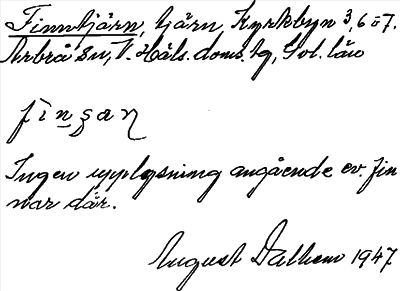 Finntjärn, tjärn, Kyrkbyn 3, 6 o 7.
Arbrå sn, V. Häls. doms. hg, Gvl. län
Ingen upplysning angående ev. fin
nar där.
August Dalhem 1947